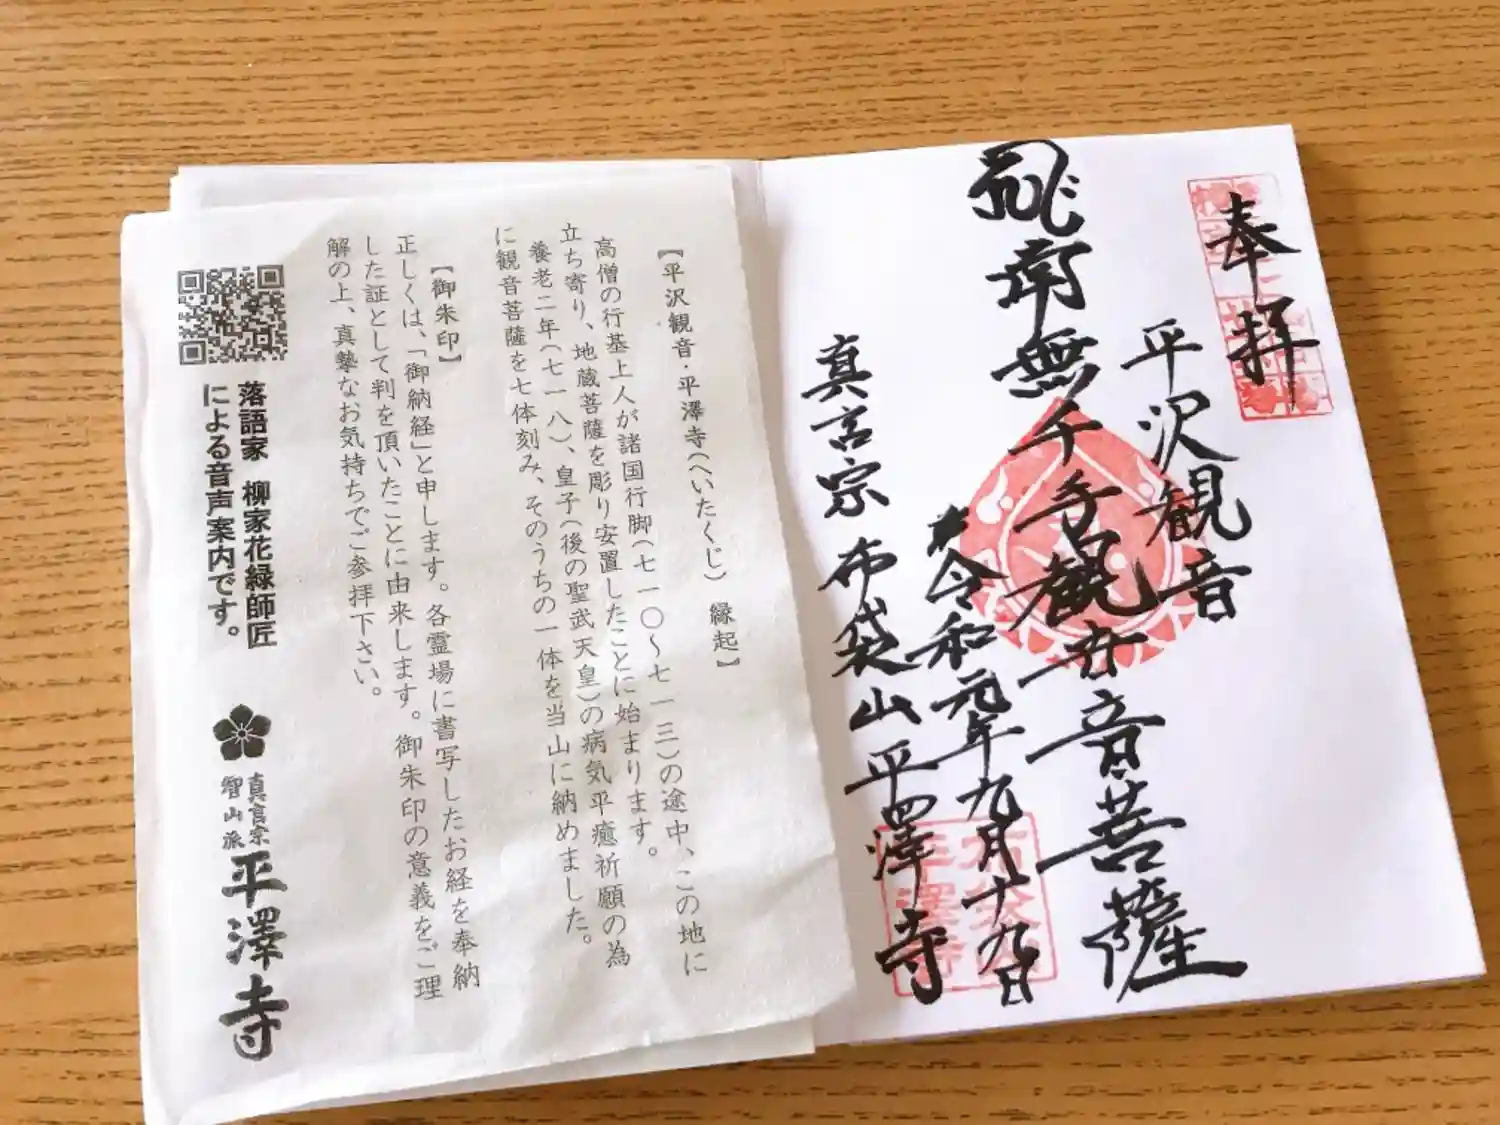 奉拝
平沢観音
南無千手観世音菩薩
令和元年九月十九日
真言宗 布袋山平澤寺
【平沢観音・平澤寺(へいたくじ) 縁起】
高僧の行基上人が諸国行脚(七一〇〜七一三)の途中、この地に
立ち寄り、地蔵菩薩を彫り安置したことに始まります。
養老二年(七一八)、皇子(後の聖武天皇)の病気平癒祈願の為
に観音菩薩を七体刻み、そのうちの一体を当山に納めました。
【御朱印】
正しくは、「御納経」と申します。各霊場に書写したお経を奉納
した証として判を頂いたことに由来します。御朱印の意義をご理
解の上、真摯なお気持ちでご参拝下さい。
落語家 柳家花緑師匠
による音声案内です。
真言宗
智山派
平澤寺